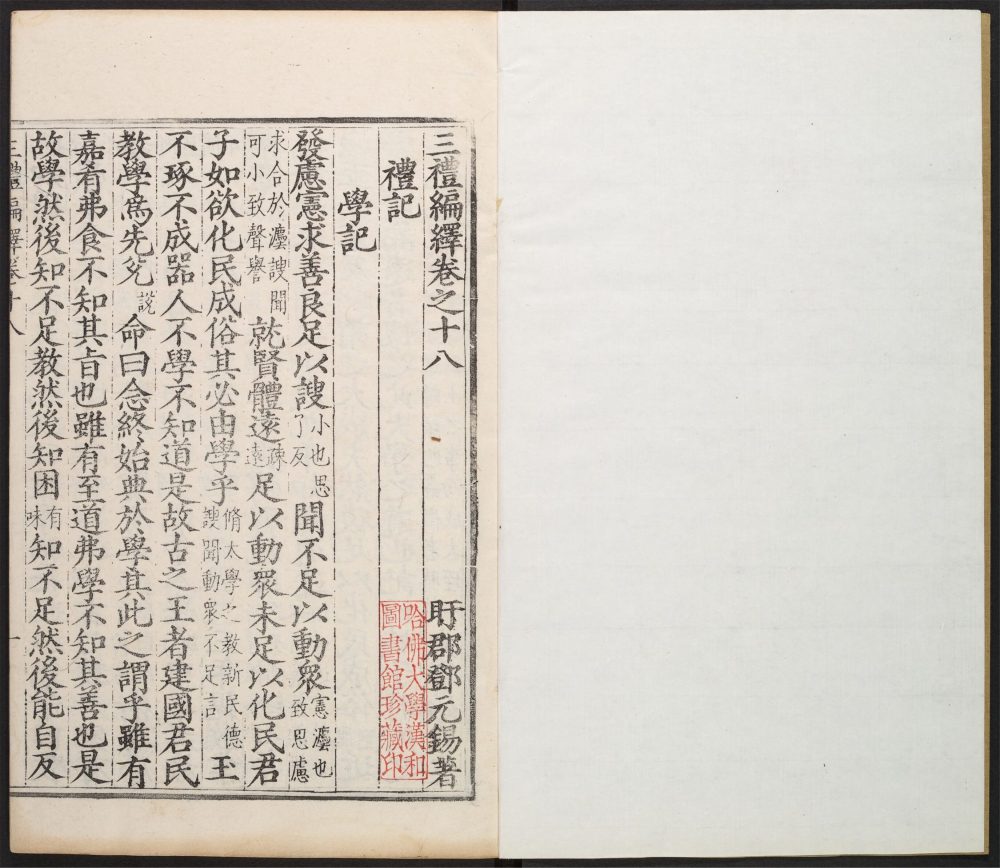 三禮編繹卷之十八
盱郡鄧元錫著
禮記
哈佛大學漢和
圖書館珍藏印
學記
發慮憲求善良足以謏小也思了反聞不足以動衆憲灋也致思慮
求合於灋謏聞可小致聲譽就賢體遠疎遠足以動衆未足以化民君
子如欲化民成俗其必由學乎脩太學之教新民德謏聞動衆不足言玉
不琢不成器人不學不知道是故古之王者建國君民
教學爲先兊說命曰念終始典於學其此之謂乎雖有
嘉肴弗食不知其旨也雖有至道弗學不知其善也是
故學然後知不足教然後知困有味知不足然後能自反
三禮編繹卷十八
一